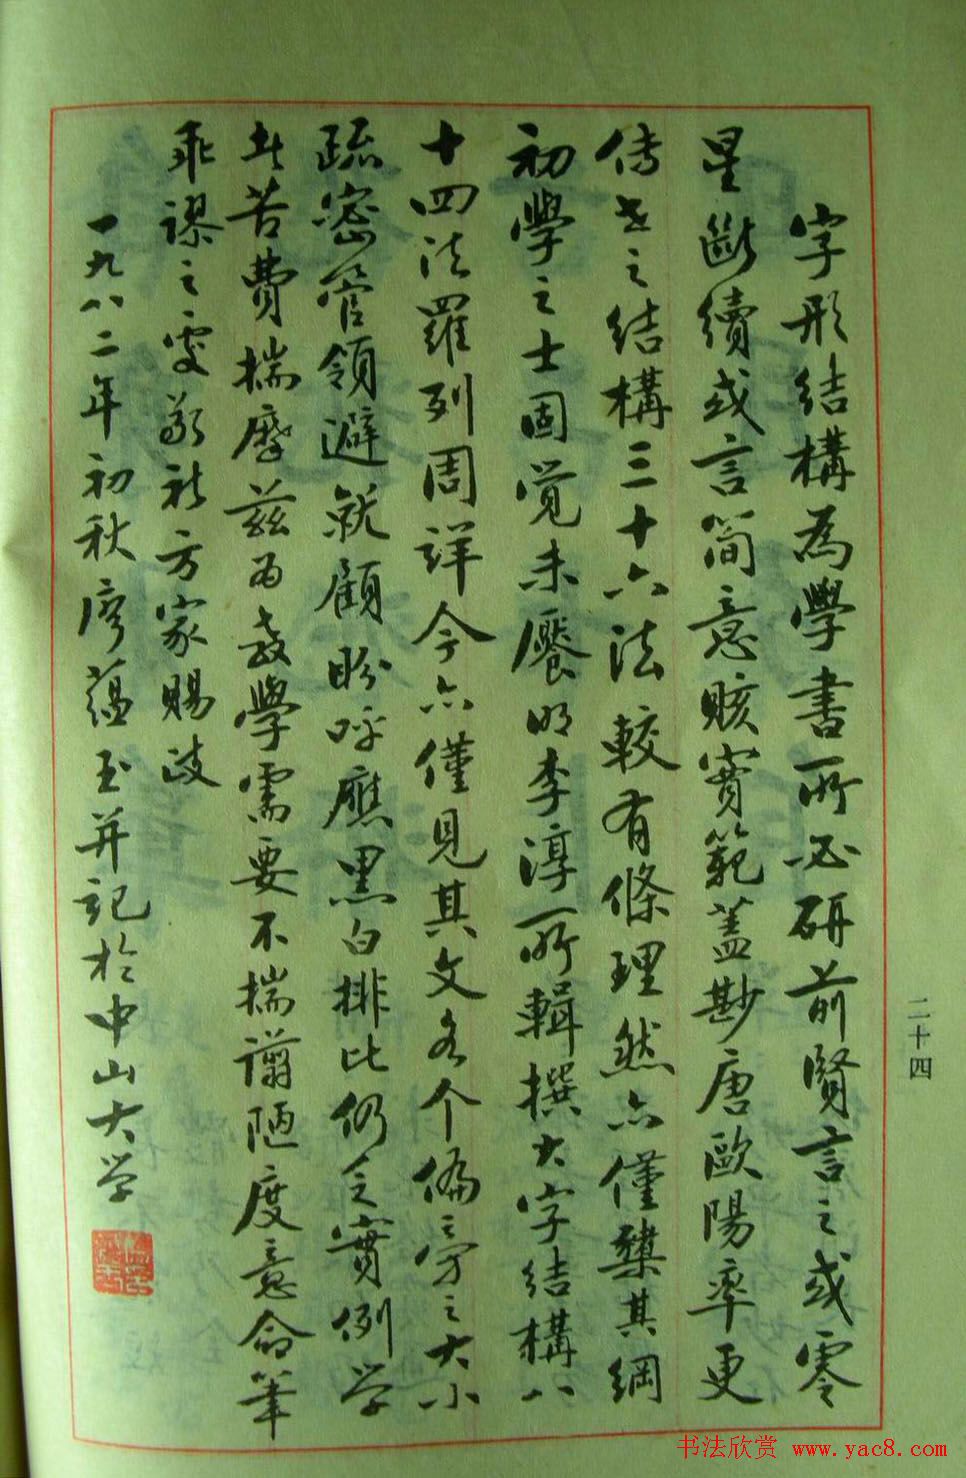 字形結構為學書所必研前賢言之或零
星斷續或言簡意賅實範蓋尟唐歐陽率更
傳世之結構三十六法較有條理然亦僅舉其綱
初學之士固覺未饜明李淳所輯撰大字結構八
十四法羅列周詳今亦僅見其文各个偏旁之大小
疏密管領避就顧盼呼應黑白排比仍乏實例学
者苦費揣摩茲為教學需要不揣譾陋度意命筆
乖謬之處敬祈方家賜政
一九八二年初秋廖蘊玉并記於中山大学
二十四
书法欣赏 www.yac8.com